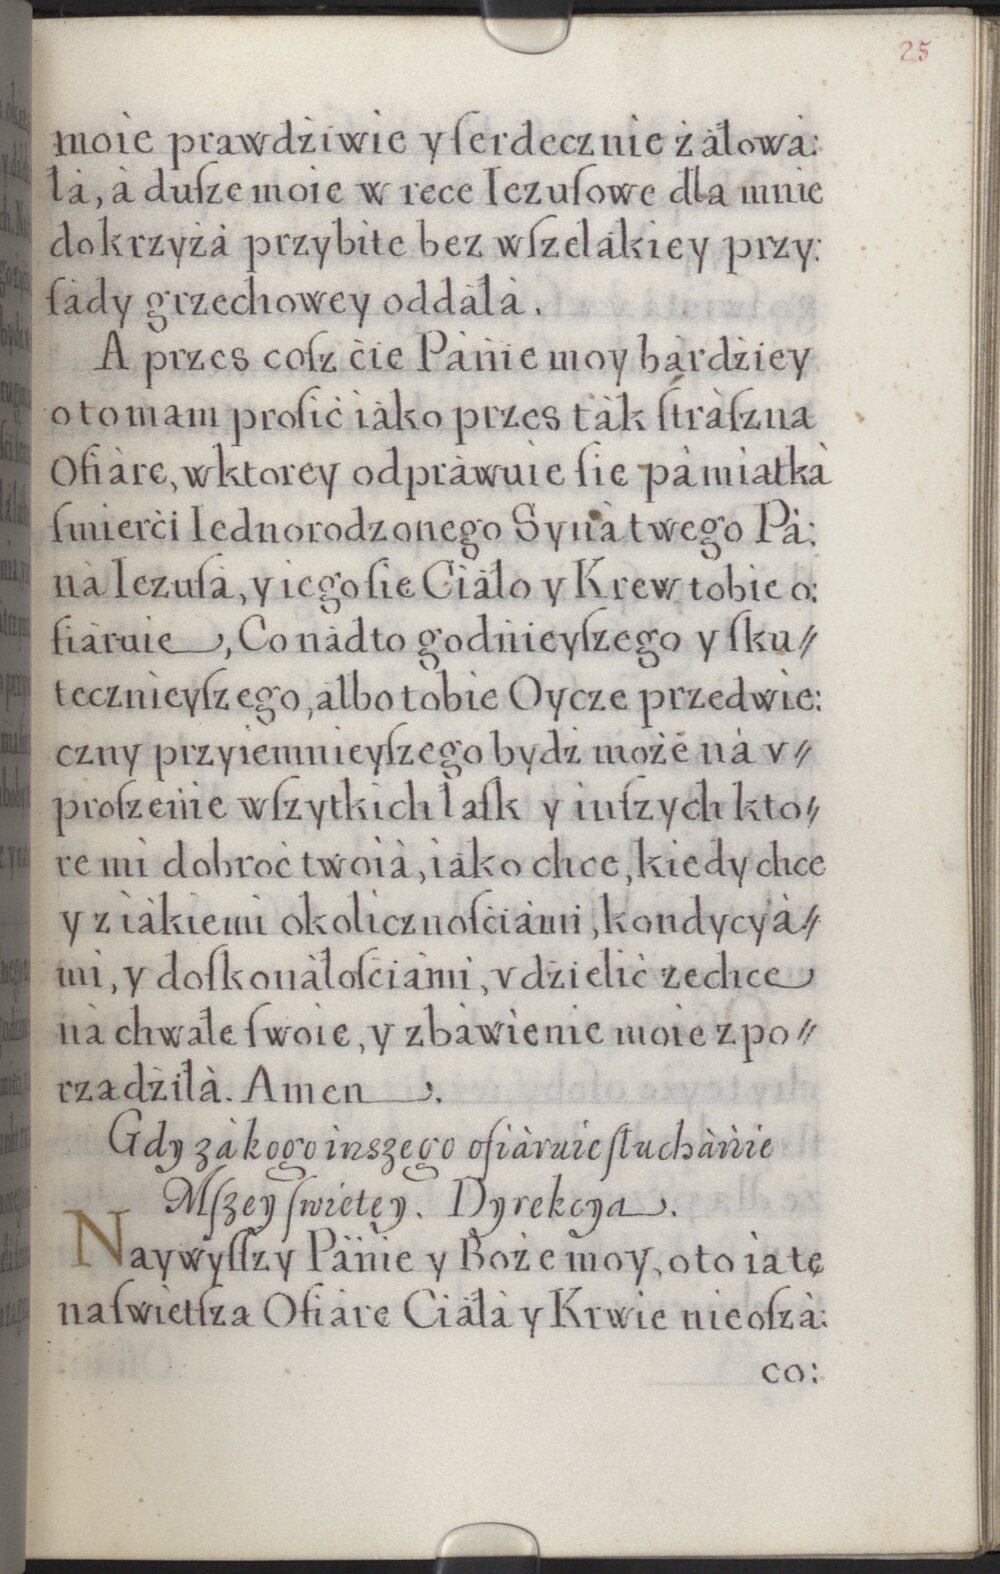 25
moie prawdźiwie y ſerdecznie żàłowà:
łà, à duſze moie w rece Iezuſowe dla mnie
do krzyżà przybite bez wſzelàkiey przy:
ſàdy grzechowey oddàłà.
A przes coſz ċie Pànie moy bàrdźiey
oto mam proſiċ iàko przes tàk ſtràſzna
Ofiàrę, w ktorey odpràwuie ſię pàmiatkà
ſmierċi Iednorodzonego Synà twego Pà:
nà Iezuſà, y iego ſię Ciàło y Krew tobie o:
fiàruie, Co nàdto godnieyſzego y ſku//
tecznieyſzego, àlbo tobie Oycze przedwie:
czny przyiemnieyſzego bydź może nà v//
proſzenie wſzytkich łaſk y inſzych kto//
re mi dobroċ twoià, iàko chce, kiedy chce
y z iàkiemi okolicznoſċiàmi, kondycyà//
mi, y doſkonàłoſċiàmi, vdźieliċ zechce
nà chwałę ſwoię, y zbàwienie moie zpo//
rzadźiłà. Amen.
Gdy zà kogo inszego ofiàruie ſłuchànie
Mſzey ſwiętey. Dyrekcya.
Naywyſſzy Pànie y Boże moy, oto ia tę
naſwietſza Ofiàrę Ciàłà y Krwie nieoſzà:
co: